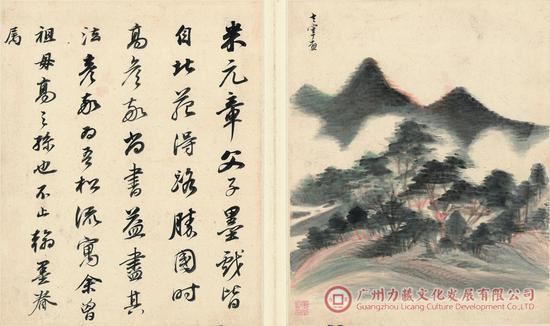 米元章父子墨戲皆
自北苑得路勝國時
高彥敬尚書益盡其
法彥敬為吾松流寓余曾
祖母高之孫也不止翰墨眷
属
玄宰画
广州力藏文化发展有限公司
Guangzhou Licang Culture Development Co.,Ltd.